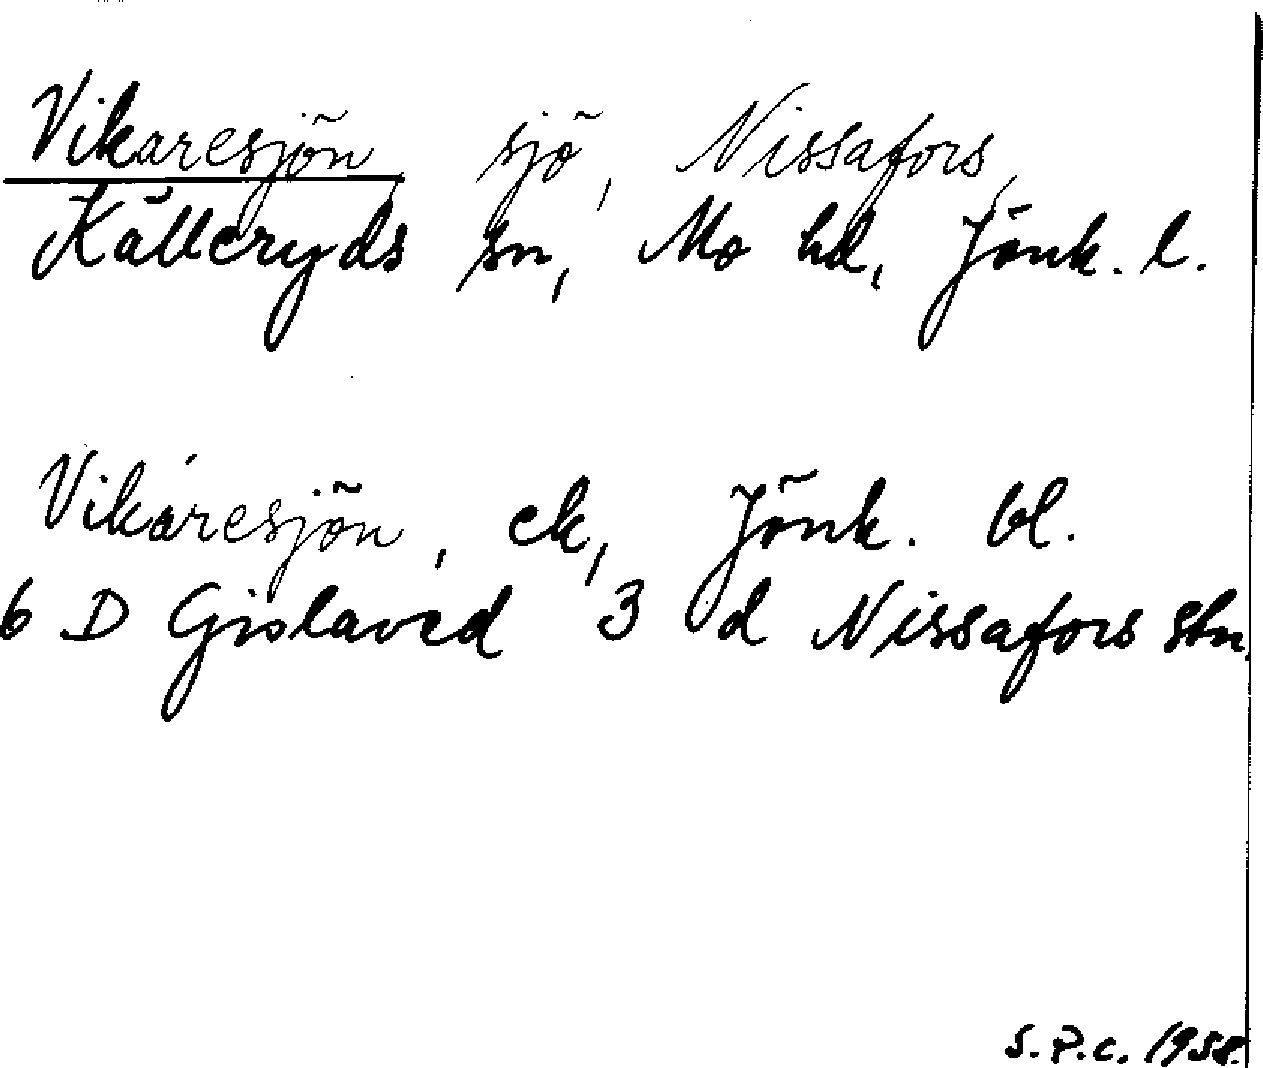 Vikaresjön sjö, Nissafors,
Källeryds sn, Mo hd, Jönk. l.
Vikáresjön, ek, Jönk. bl.
6 D Gislaved 3 d Nissafors stn.
S.P.C. 1958.